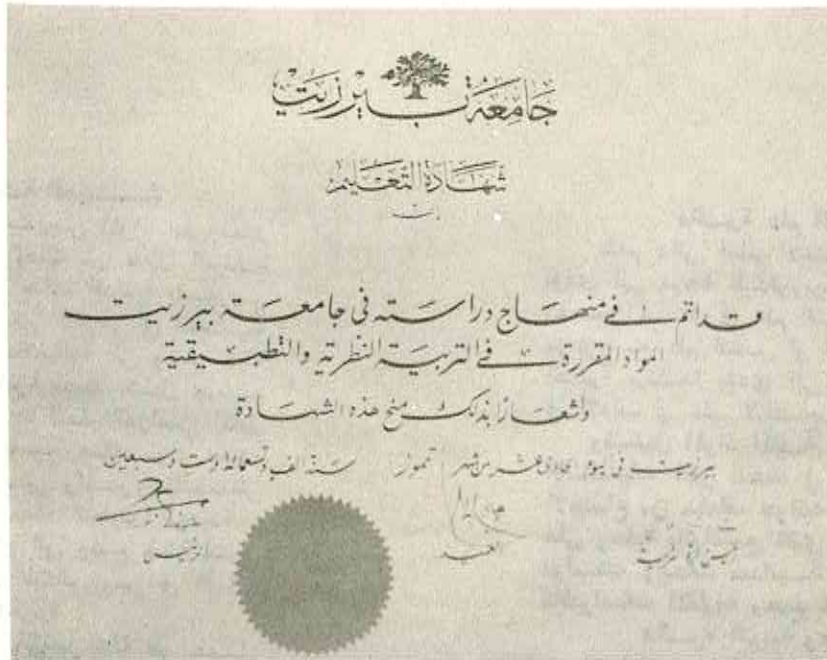 جامعة بيرزيت
شهادة التعليم
إن
قد اتم في منهاج دراسته في جامعة بيرزيت
المواد المقررة في التربية النظرية والتطبيقية
واشعارًا بذلك منح هذه الشهادة
بيرزيت في يوم الحادي عشر من شهر تموز سنة الف وتسعمائة وست وسبعين
العميد الرئيس